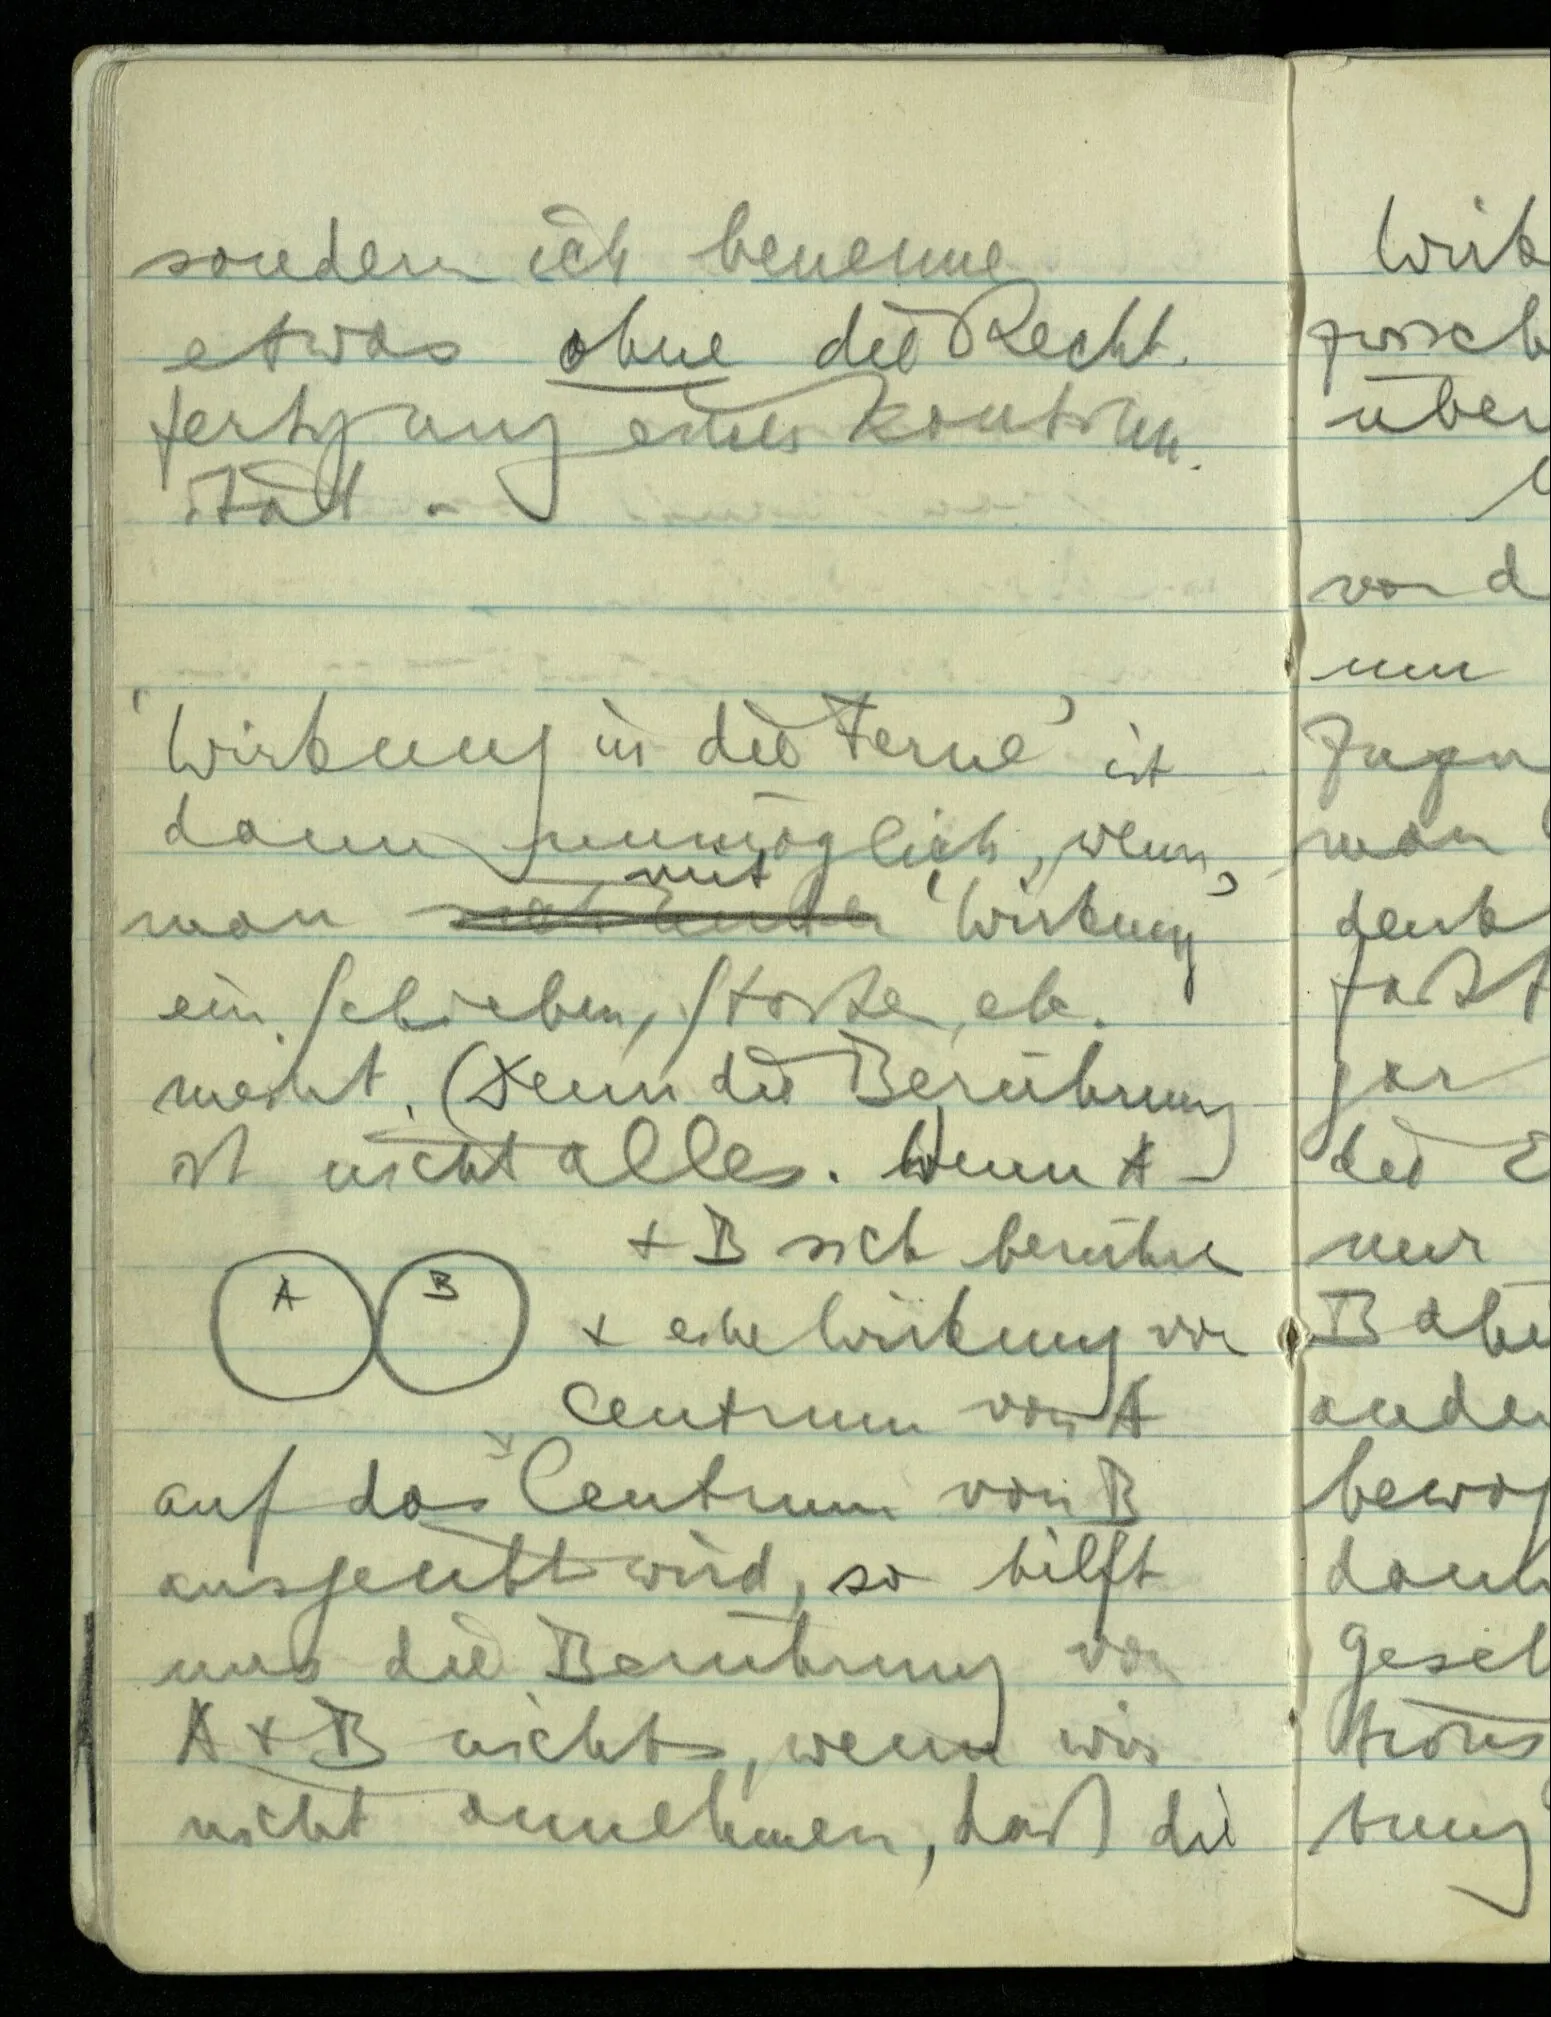 sondern ich benenne
etwas ohne die Recht-
fertigung einer Kontinu-
ität.
'Wirkung in die Ferne' ist
dann unmöglich, wenn
mit
man 'Wirkung'
ein Schieben, Stoßen, etc.
meint. (Denn die Berührung
ist nicht alles. Wenn A
+ B sich berühren
A B
+ eine Wirkung vom
Centrum von A
auf das Centrum von B
ausgeübt wird, so hilft
uns die Berührung von
A + B nichts, wenn wir
nicht annehmen, daß die
Wirk
zwisch
über
von d
nun
man
denk
faßt
gar
die E
nur
B abe
ander
beweg
dann
Gesch
bung